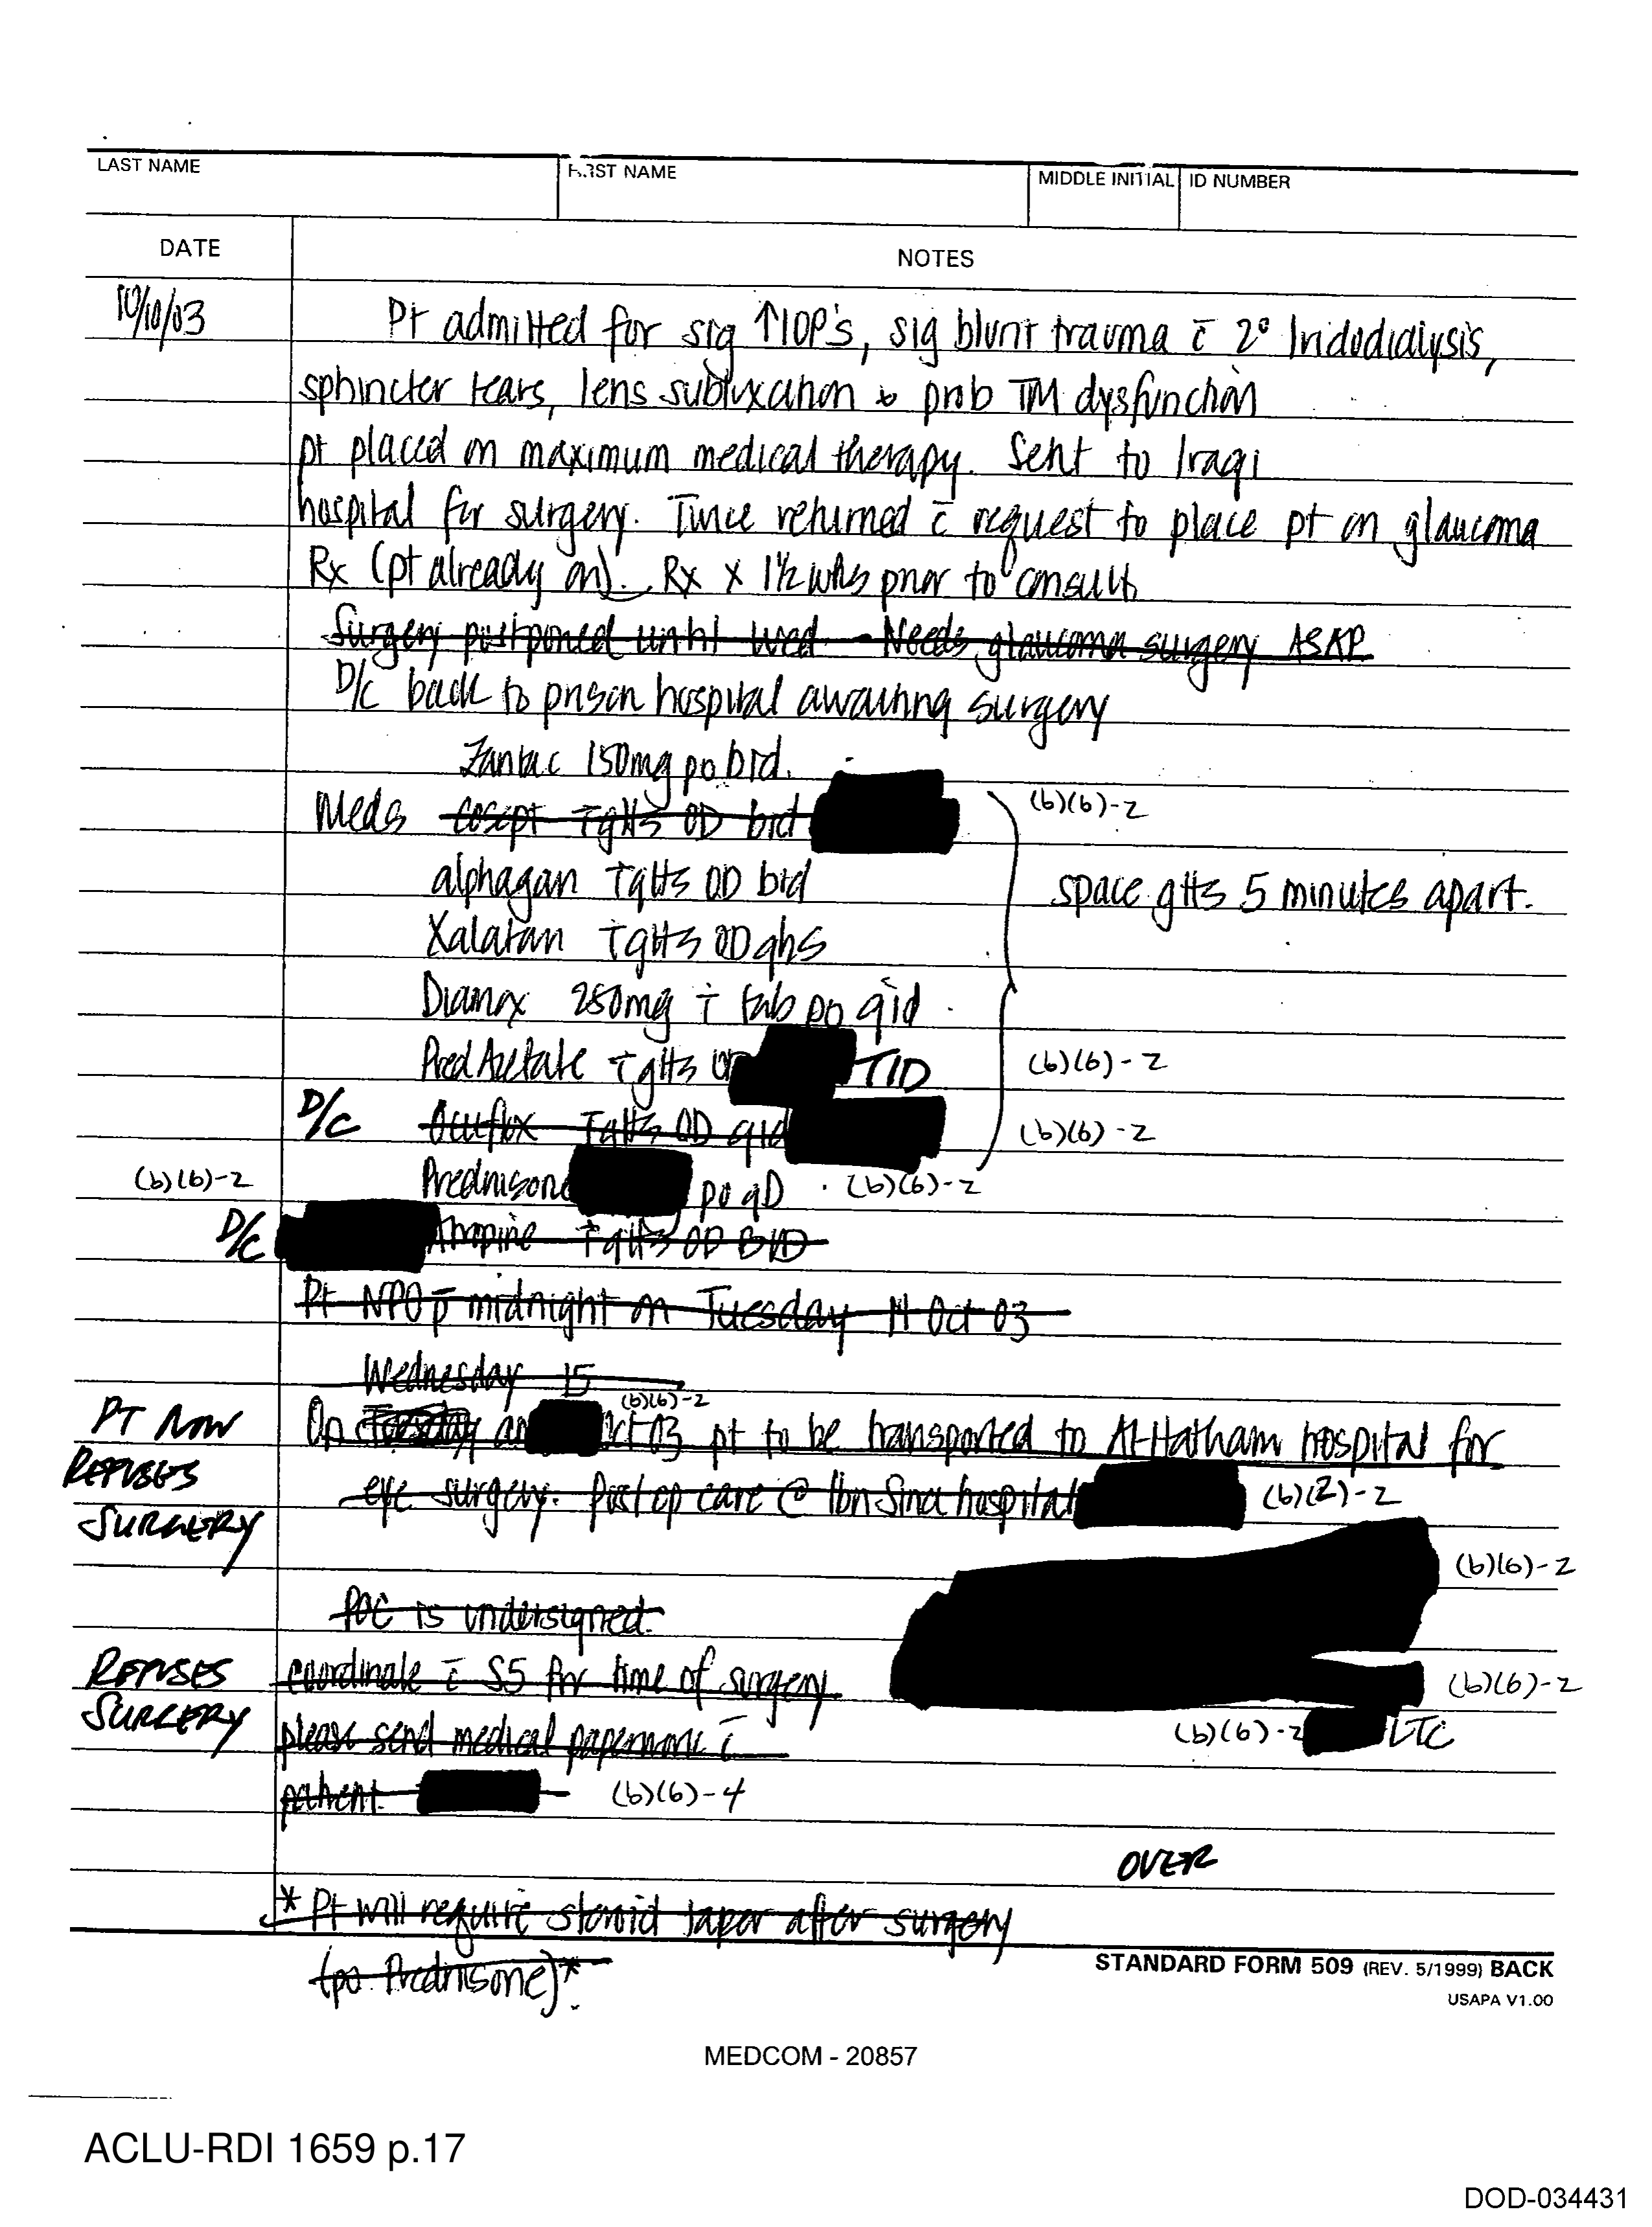 LAST NAME FIRST NAME MIDDLE INITIAL ID NUMBER
DATE NOTES
10/10/03 Pt admitted for sig ↑IOP's, sig blunt trauma c̄ 2° Iridodialysis,
sphincter tears, lens subluxation & prob TM dysfunction
pt placed on maximum medical therapy. Sent to Iraqi
hospital for surgery. Twice returned c̄ request to place pt on glaucoma
Rx (pt already on). Rx x 1½ wks prior to consult
Surgery postponed until Wed - Needs glaucoma surgery ASAP
D/C back to prison hospital awaiting surgery
Zantac 150mg po bid.
Meds Cosopt T gtts OD bid (b)(6)-2
alphagan T gtts OD bid space gtts 5 minutes apart.
Xalatan T gtts OD qhs
Diamox 250mg T tab po qid
Pred Acetate T gtts TID (b)(6)-2
D/C Ocuflox T gtts OD qid (b)(6)-2
(b)(6)-2 Prednisone po qD (b)(6)-2
D/C Atropine T gtts OD BID
Pt NPO p̄ midnight on Tuesday 14 Oct 03
Wednesday 15
(b)(6)-2
PT NOW On Tuesday Oct 03 pt to be transported to Al-Hatham hospital for
REFUSES eye surgery. Post op care @ Ibn Sina hospital (b)(2)-2
SURGERY
(b)(6)-2
POC is undersigned.
REFUSES coordinate c̄ S5 for time of surgery (b)(6)-2
SURGERY please send medical paperwork c̄ (b)(6)-2 LTC
patient (b)(6)-4
OVER
* Pt will require steroid taper after surgery
(po Prednisone)*
STANDARD FORM 509 (REV. 5/1999) BACK
USAPA V1.00
MEDCOM - 20857
ACLU-RDI 1659 p.17
DOD-034431